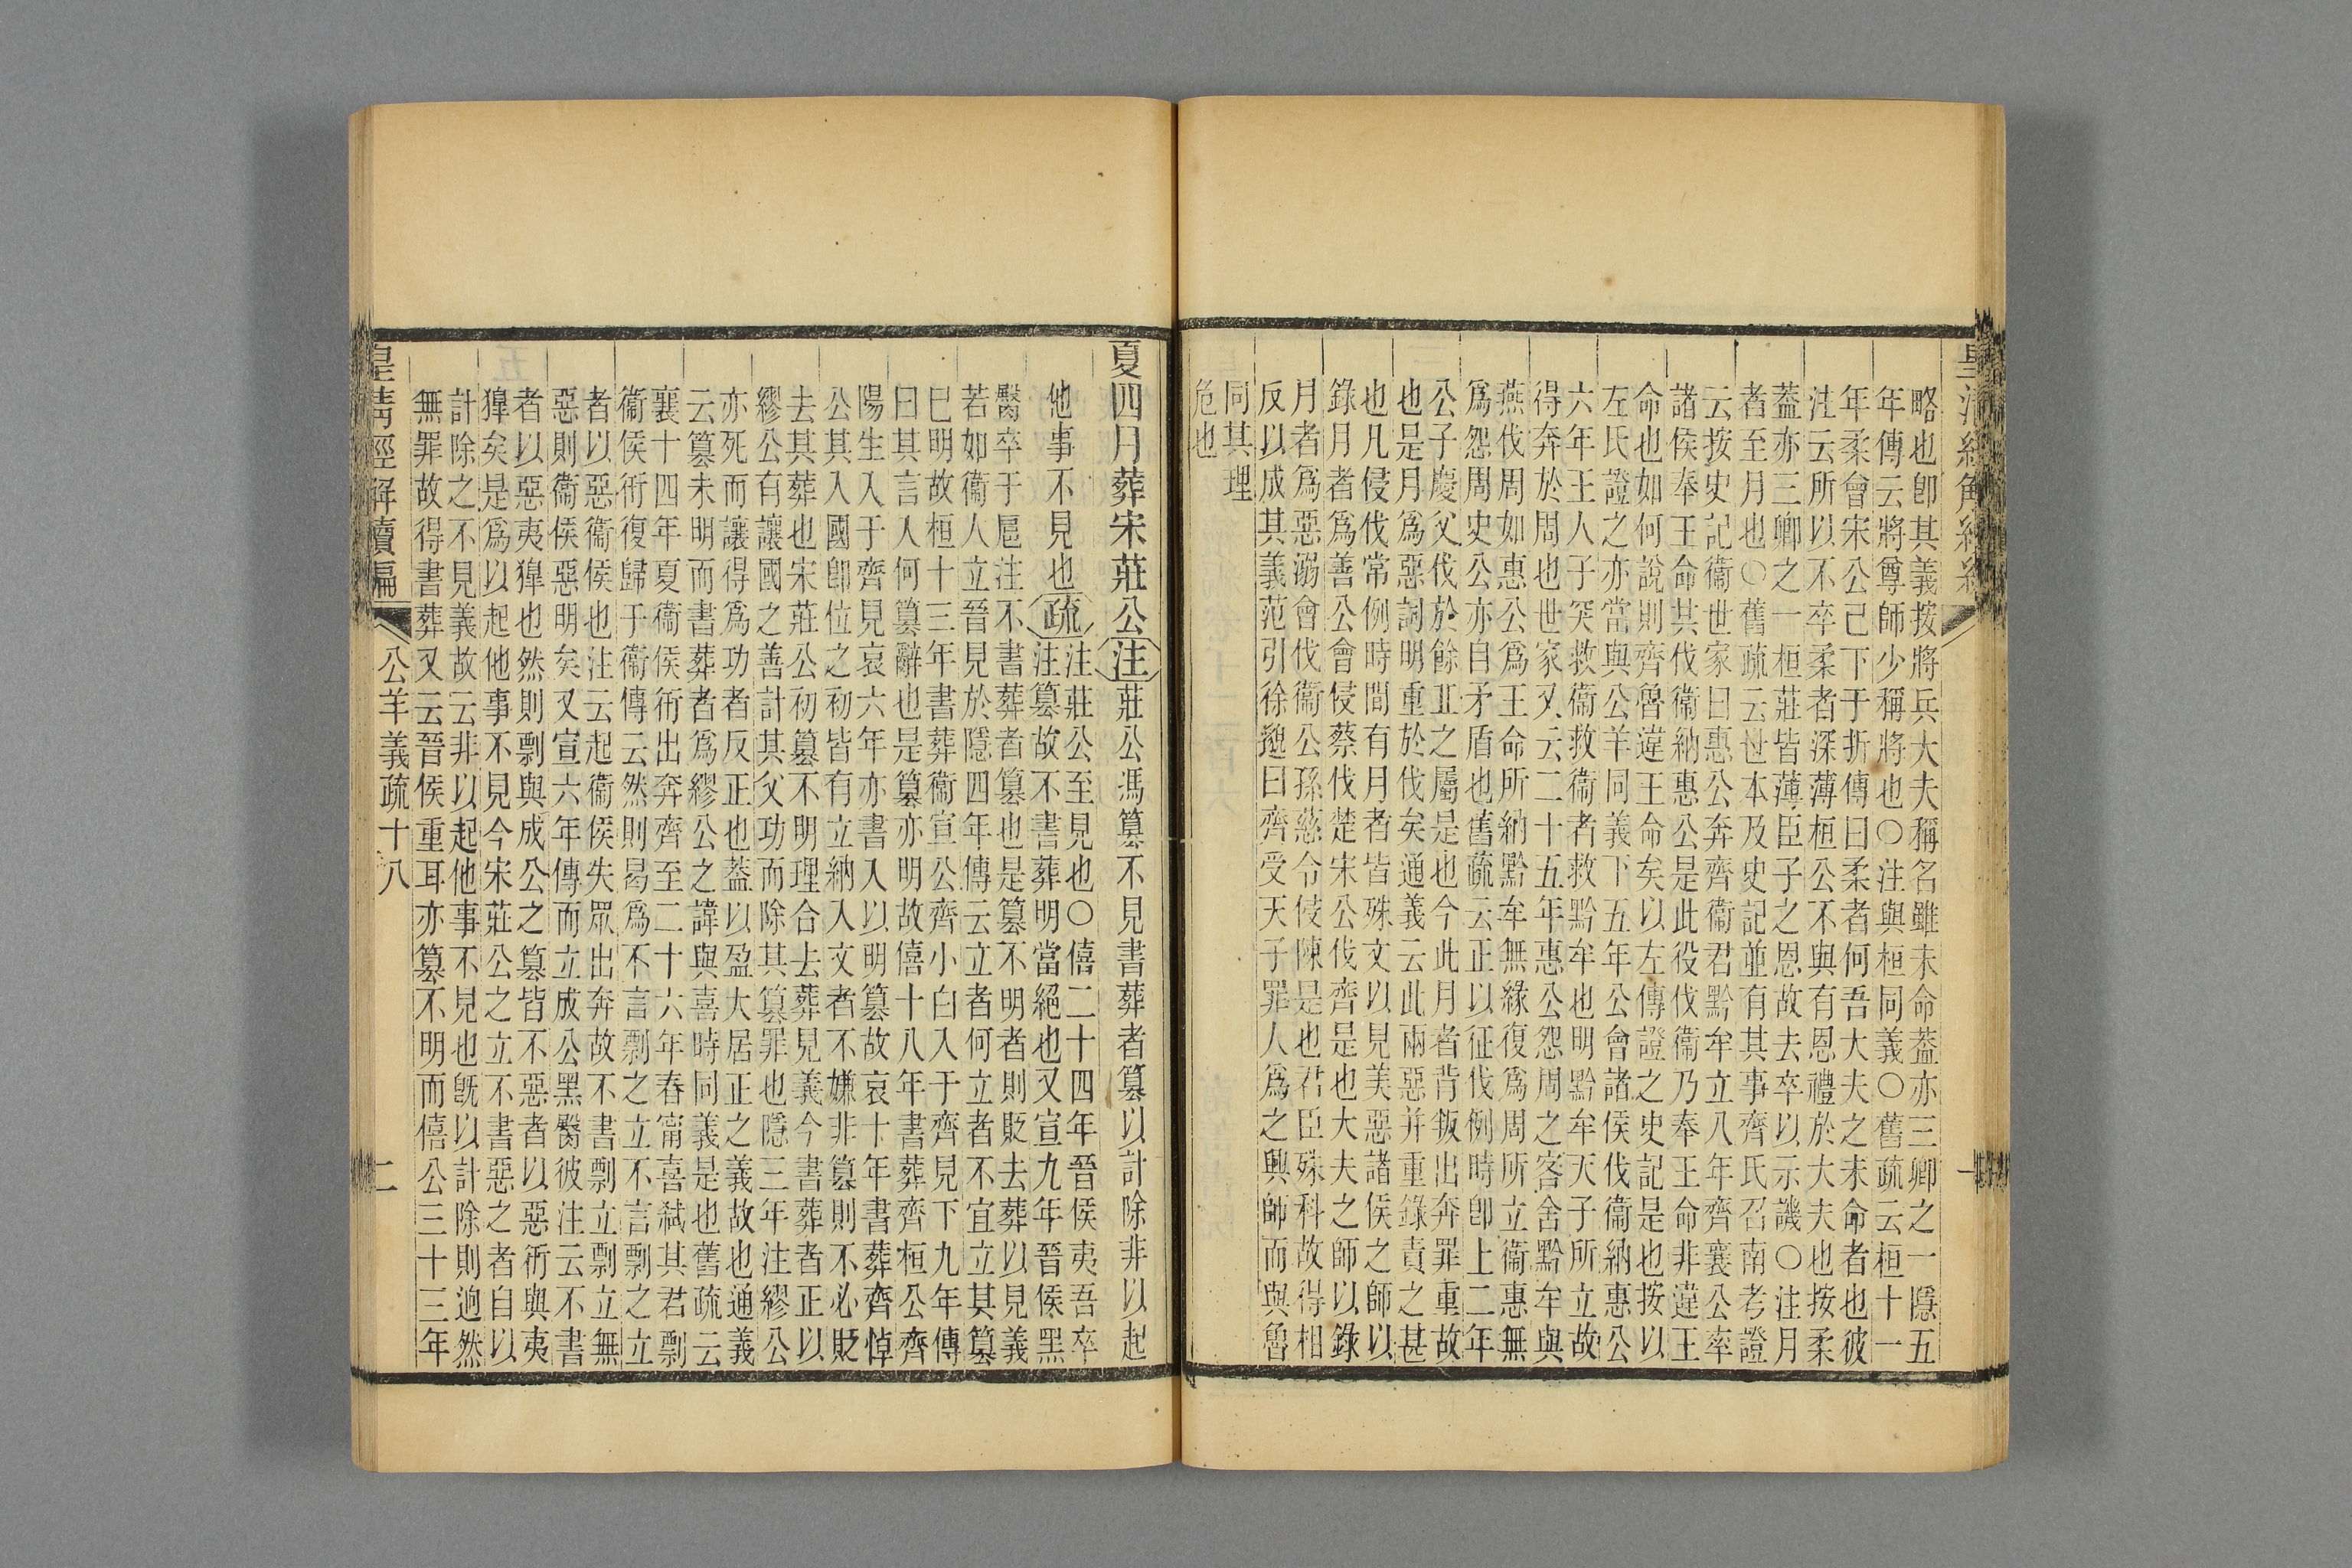 略也卽其義按將兵大夫稱名雖未命葢亦三卿之一隱五
年傳云將尊師少稱將也○注與桓同義○舊疏云桓十一
年柔會宋公已下于折傳曰柔者何吾大夫之未命者也彼
注云所以不卒柔者深薄桓公不與有恩禮於大夫也按柔
葢亦三卿之一桓莊皆薄臣子之恩故去卒以示譏○注月
者至月也○舊疏云世本及史記並有其事齊氏召南考證
云按史記衞世家曰惠公奔齊衞君黔牟立八年齊襄公率
諸侯奉王命其伐衞納惠公是此役伐衞乃奉王命非違王
命也如何說則齊魯違王命矣以左傳證之史記是也按以
左氏證之亦當與公羊同義下五年公會諸侯伐衞納惠公
六年王人子突救衞救衞者救黔牟也明黔牟天子所立故
得奔於周也世家又云二十五年惠公怨周之容舍黔牟與
燕伐周如惠公爲王命所納黔牟無緣復爲周所立衞惠無
爲怨周史公亦自矛盾也舊疏云正以征伐例時卽上二年
公子慶父伐於餘丘之屬是也今此月者背叛出奔罪重故
也是月爲惡詞明重於伐矣通義云此兩惡并重錄責之甚
也凡侵伐常例時間有月者皆殊文以見美惡諸侯之師以
錄月者爲善公會侵蔡伐楚宋公伐齊是也大夫之師以錄
月者爲惡溺會伐衞公孫慈令伎陳是也君臣殊科故得相
反以成其義范引徐邈曰齊受天子罪人爲之興師而與魯
同其理
危也
夏四月葬宋莊公注莊公馮篡不見書葬者篡以計除非以起
他事不見也疏注莊公至見也○僖二十四年晉侯夷吾卒
注篡故不書葬明當絕也又宣九年晉侯黑
臀卒于扈注不書葬者篡也是篡不明者則貶去葬以見義
若如衞人立晉見於隱四年傳云立者何立者不宜立其篡
已明故桓十三年書葬衞宣公齊小白入于齊見下九年傳
曰其言入何篡辭也是篡亦明故僖十八年書葬齊桓公齊
陽生入于齊見哀六年亦書入以明篡故哀十年書葬齊悼
公其入國卽位之初皆有立納入文者不嫌非篡則不必貶
去其葬也宋莊公初篡不明理合去葬見義今書葬者正以
繆公有讓國之善計其父功而除其篡罪也隱三年注繆公
亦死而讓得爲功者反正也葢以盈大居正之義故也通義
云篡未明而書葬者爲繆公之諱與喜時同義是也舊疏云
襄十四年夏衞侯衎出奔齊至二十六年春甯喜弒其君剽
衞侯衎復歸于衞傳云然則曷爲不言剽之立不言剽之立
者以惡衞侯也注云起衞侯失眾出奔故不書剽立剽立無
惡則衞侯惡明矣又宣六年傳而立成公黑臀彼注云不書
者以惡夷獋也然則剽與成公之篡皆不惡者以惡衎與夷
獋矣是爲以起他事不見今宋莊公之立不書惡之者自以
計除之不見義故云非以起他事不見也旣以計除則逈然
無罪故得書葬又云晉侯重耳亦篡不明而僖公三十三年
皇淸經解續編
公羊義疏十八
二